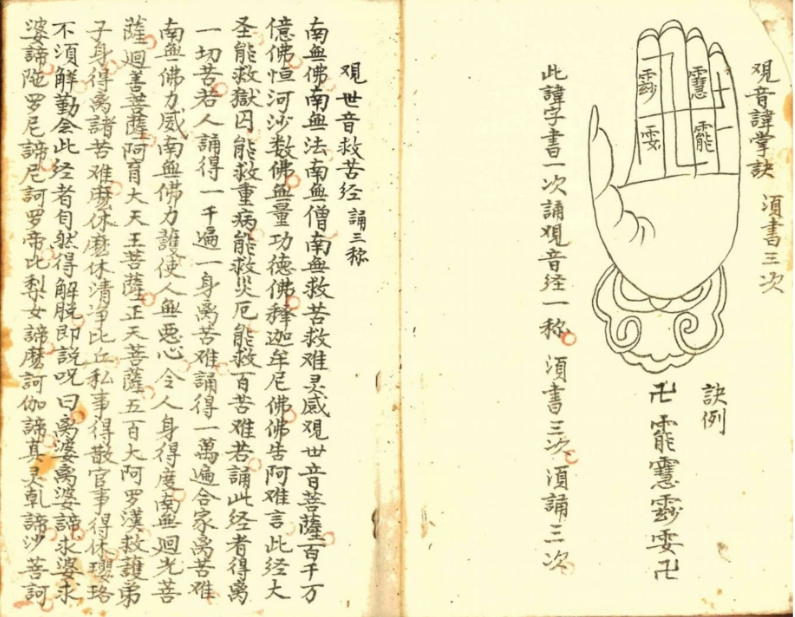 观音諱掌訣 須書三次
靈慧
龗
雲紗
雯
訣例
此諱字書一次誦观音经一称 須書三次 須誦三次
观世音救苦经 誦三称
南無佛南無法南無僧南無救苦救难灵感观世音菩薩百千万
億佛恒河沙数佛無量功德佛釋迦牟尼佛佛告阿难言此经大
圣能救獄囚能救重病能救災厄能救百苦难若誦此经者得离
一切苦若人誦得一千遍一身离苦难誦得一萬遍合家离苦难
南無佛力威南無佛力護使人無惡心令人身得度南無迴光菩
薩迴善菩薩阿育大天王菩薩正天菩薩五百大阿罗漢救護弟
子身得离諸苦难麽休麽休清净比丘私事得散官事得休璎珞
不須解勤念此经者自然得解脱即説呪曰离婆离婆諦求婆求
婆諦陁罗尼諦尼訶罗帝比梨女諦麽訶伽諦真灵乹諦沙菩訶